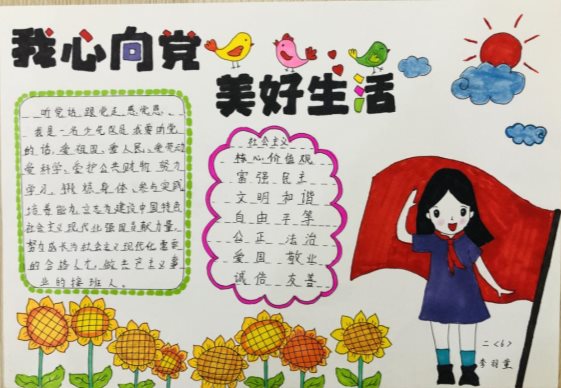 我心向党
美好生活
听党话 跟党走 感党恩
我是一名少先队员 我要听党
的话,爱祖国、爱人民、爱劳动
爱科学、爱护公共财物 努力
学习、锻炼身体、参与实践
培养能力,立志为建设中国特色
社会主义现代化强国贡献力量,
努力成长为社会主义现代化需要
的合格人才,做共产主义事
业的接班人。
社会主义
核心价值观
富强 民主
文明 和谐
自由 平等
公正 法治
爱国 敬业
诚信 友善
二<6>
李羽